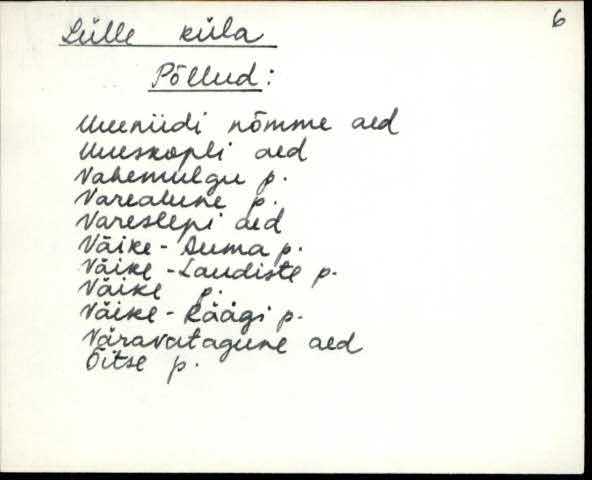 6
Lülle küla
Põllud:
Uueniidi nõmme aed
Uueskopli aed
Vahemulgu p.
Varealune p.
Vareslepi aed
Väike-Auma p.
Väike-Laudiste p.
Väike p.
Väike-Räägi p.
Väravatagune aed
Õitse p.